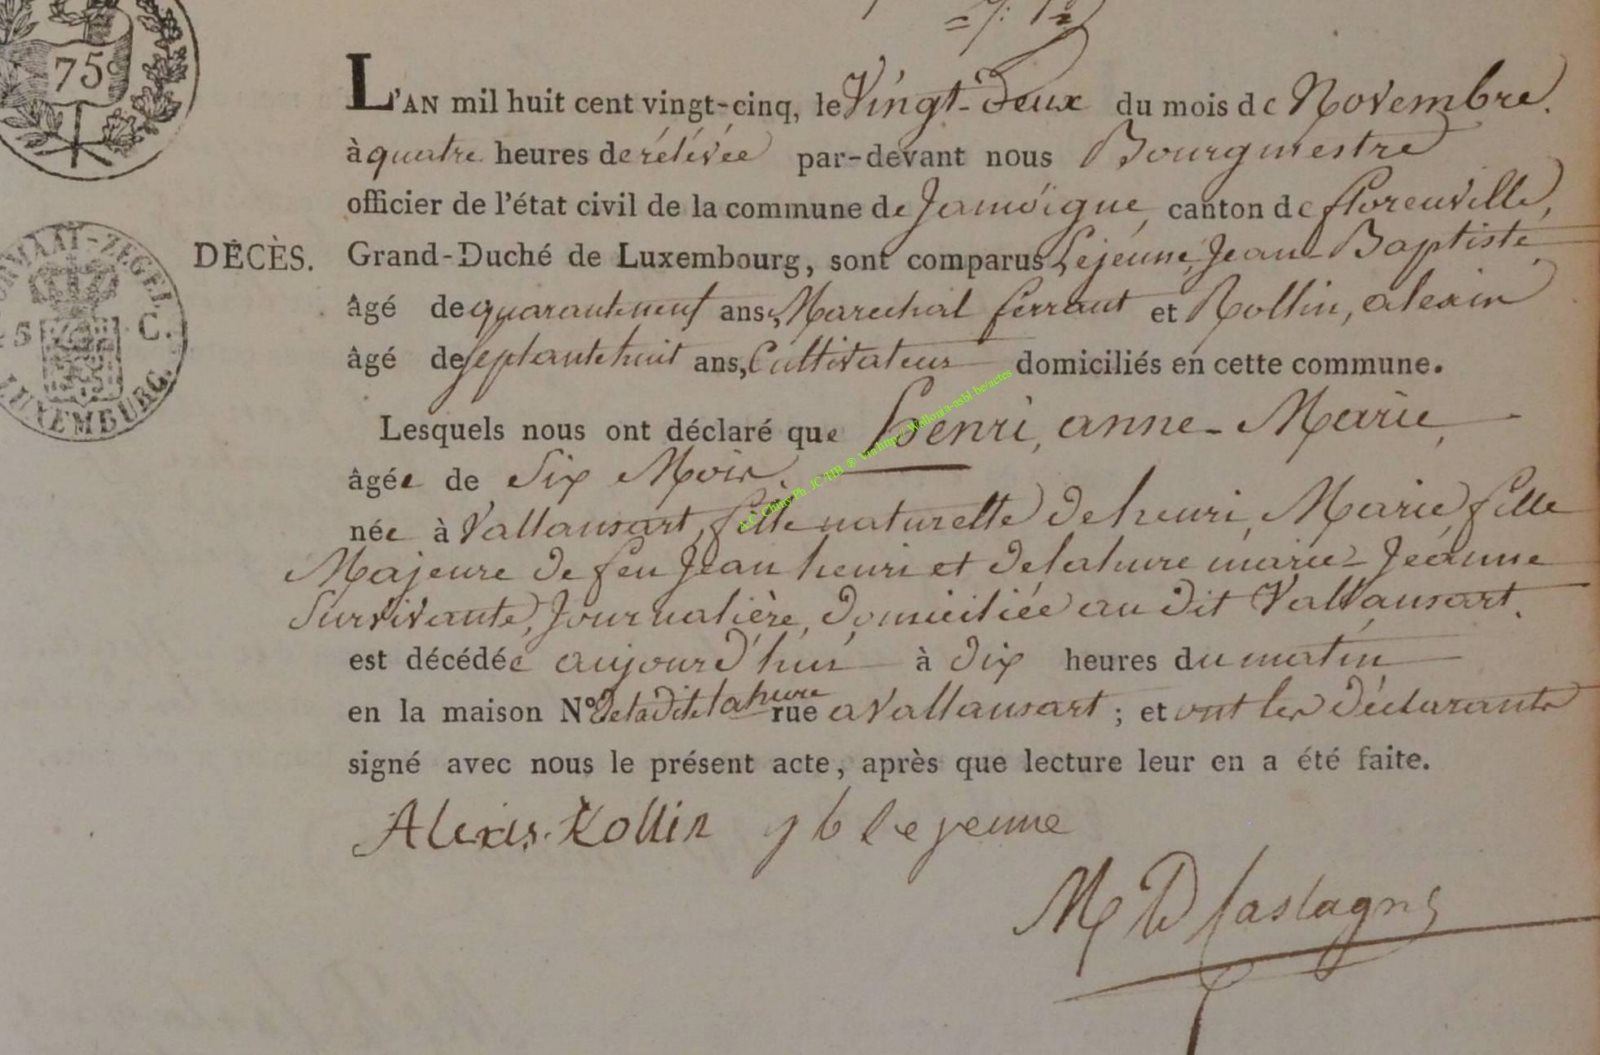 75c
L'AN mil huit cent vingt-cinq, le Vingt-deux du mois de Novembre.
à quatre heures de rélévée par-devant nous Bourgmestre
officier de l'état civil de la commune de Jamoïgne, canton de florenville,
DÉCÈS. Grand-Duché de Luxembourg, sont comparus Lejeune, Jean Baptiste,
âgé de quarante neuf ans, Marechal ferrant et Rollin, alexis
âgé de septante huit ans, Cultivateur domiciliés en cette commune.
Lesquels nous ont déclaré que henri, anne-Marie,
âgée de Six Mois.
née à Vallansart, fille naturelle de henri, Marie, fille
Majeure de feu Jean henri et delahure marie-Jeanne
Survivante, Journalière, domiciliée au dit Vallansart.
est décédée aujourd'hui à dix heures du matin
en la maison N° de ladite lahure rue a Vallansart ; et ont les déclarants
signé avec nous le présent acte, après que lecture leur en a été faite.
Alexis Rollin j b lejeune
ZEGEL
5 C.
LUXEMBURG.
A.C. Chiny Ph. JC/HB ® Via http://Wallonia-asbl.be/actes